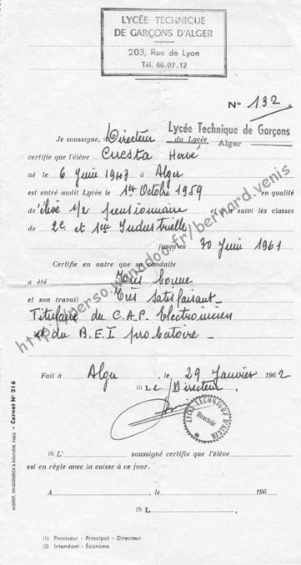 LYCÉE TECHNIQUE
DE GARÇONS D'ALGER
203, Rue de Lyon
Tél. 66.07.12
N° 132.
Je soussigné, Directeur du Lycée Lycée Technique de Garçons Alger
certifie que l'élève Cuesta
né le 6 Juin 1943 à Alger
est entré audit Lycée le 1er Octobre 1959 en qualité
d'élève 1/2 pensionnaire suivi les classes
de 2e et 1ère Industrielle
30 Juin 1961
Certifie en outre que sa conduite
a été Très bonne
et son travail Très satisfaisant.
Titulaire du C.A.P. Electricien
et du B.E.I probatoire.
http://perso.wanadoo.fr/bernard.venis
Fait à Alger, le 29 Janvier 1962
(1) Le Directeur.
(1) L' soussigné certifie que l'élève
est en règle avec la caisse à ce jour.
A , le 196
(1) L
(1) Proviseur - Principal - Directeur
(2) Intendant - Économe
Carnet N° 216